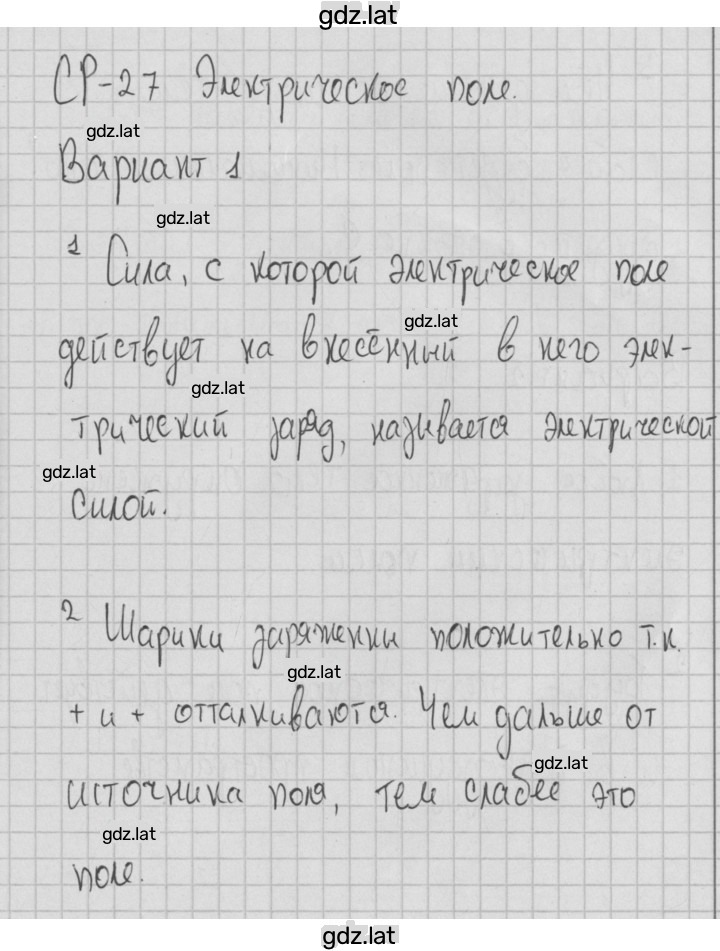 gdz.lat
СР-27 Электрическое поле.
gdz.lat
Вариант 1
gdz.lat
1 Сила, с которой электрическое поле
gdz.lat
действует на внесённый в него элек-
gdz.lat
трический заряд, называется электрической
gdz.lat
силой.
2 Шарики заряженны положительно т.к.
gdz.lat
+ и + отталкиваются. Чем дальше от
gdz.lat
источника поля, тем слабее это
gdz.lat
поле.
gdz.lat